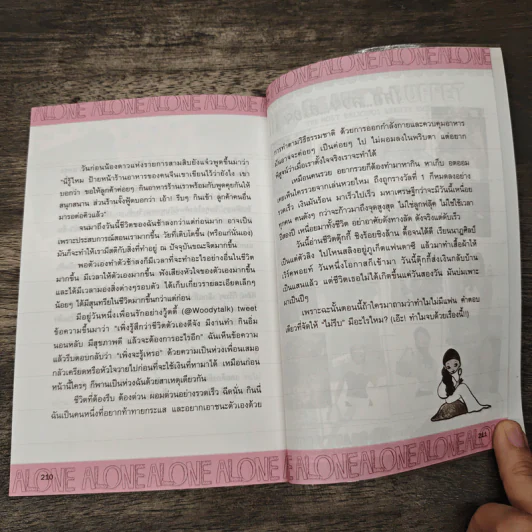 ALONE ALONE ALONE ALONE ALONE
วันก่อนน้องดาวแห่งรายการสามเติบยังแจ๋วพูดขึ้นมาว่า
"นี่รู้ไหม ป้ายหน้าร้านอาหารของคนจีนเขาเขียนไว้ว่ายังไง เขา
บอกว่า ขอให้ลูกค้าค่อยๆ กินอาหารร้านเราพร้อมกับพูดคุยกันให้
สนุกสนาน ส่วนร้านจั๊งฟู้ดบอกว่า เอ้า! รีบๆ กินเข้า ลูกค้าคนอื่น
มารอต่อคิวแล้ว"
จนมาถึงวันนี้ชีวิตของฉันช้าลงกว่าแต่ก่อนมาก อาจเป็น
เพราะประสบการณ์สอนเรามากขึ้น วัยที่เติบโตขึ้น (หรือแก่นั่นเอง)
มันก็จะทำให้เรามีสติกับสิ่งที่ทำอยู่ ณ ปัจจุบันขณะจิตมากขึ้น
พอตัวเองทำตัวช้าลงก็มีเวลาที่จะทำอะไรอย่างอื่นในชีวิต
มากขึ้น มีเวลาให้ตัวเองมากขึ้น ฟังเสียงหัวใจของตัวเองมากขึ้น
และได้มีเวลามองสิ่งต่างๆรอบตัว ได้เก็บเกี่ยวรายละเอียดเล็กๆ
น้อยๆ ได้มีสุนทรียในชีวิตมากขึ้นกว่าแต่ก่อน
มีอยู่วันหนึ่งเพื่อนรักอย่างวู้ดดี้ (@Woodytalk) tweet
ข้อความขึ้นมาว่า "เพิ่งรู้สึกว่าชีวิตตัวเองดีจัง มีงานทำ กินอิ่ม
นอนหลับ มีสุขภาพดี แล้วจะต้องการอะไรอีก" ฉันเห็นข้อความ
แล้วรีบตอบกลับว่า "เพิ่งจะรู้เหรอ" ด้วยความเป็นห่วงเพื่อนเสมอ
กลัวเครียดหรือหัวใจวายไปก่อนที่จะใช้เงินที่หามาได้ เหมือนก่อน
หน้านี้ใครๆ ก็พานเป็นห่วงฉันด้วยสาเหตุเดียวกัน
ชีวิตที่ต้องรีบ ต้องด่วน ผอมด่วนอย่างรวดเร็ว ฉีดนั่น กินนี่
ฉันเป็นคนหนึ่งที่อยากท้าทายกระแส และอยากเอาชนะตัวเองด้วย
ALONE ALONE ALONE ALONE ALONE
210
ALONE ALONE ALONE ALONE ALONE
การทำตามวิธีธรรมชาติ ด้วยการออกกำลังกายและควบคุมอาหาร
มันอาจจะค่อยๆ เป็นค่อยๆ ไป ไม่ผอมลงในพริบตา แต่อยาก
พิสูจน์ว่าเมื่อเราตั้งใจจริงเราจะทำได้
เหมือนคนรวย อยากรวยก็ต้องทำมาหากิน หาเก็บ อดออม
เคยเห็นใครรวยจากเล่นหวยไหม ถึงถูกรางวัลที่ 1 ก็หมดลงอย่าง
รวดเร็ว เงินมันร้อน มาเร็วไปเร็ว มหาเศรษฐีกว่าจะมีวันนี้เหนื่อย
ทุกคน คนดังๆ กว่าจะก้าวมาถึงจุดสูงสุด ไม่ใช่ฟลุ้ค ไม่ใช่ใช้เวลา
ปีสองปี เหนื่อยมาทั้งชีวิต อย่าอาศัยดังทางลัด ดังจริงแต่ดับเร็ว
วันนี้อ่านชีวิตตุ๊กกี้ ชิงร้อยชิงล้าน ดื้อจนได้ดี เรียนนาฏศิลป์
เป็นแต่ตัวลิง ไปโหนสลิงอยู่ภูเก็ตแฟนตาซี แล้วมาทำเสื้อผ้าให้
เวิร์คพอยท์ วันหนึ่งโอกาสก็เข้ามา วันนี้ตุ๊กกี้ส่งเงินกลับบ้าน
เป็นแสนแล้ว แต่ชีวิตเธอไม่ได้เกิดขึ้นแค่วันสองวัน มันบ่มเพาะ
มาเป็นปีๆ
เพราะฉะนั้นตอนนี้ถ้าใครมาถามว่าทำไมไม่มีแฟน คำตอบ
เดียวที่จัดให้ "ไม่รีบ" มีอะไรไหม? (เอ๊ะ! ทำไมจบด้วยเรื่องนี้!)
ALONE ALONE ALONE ALONE ALONE
211